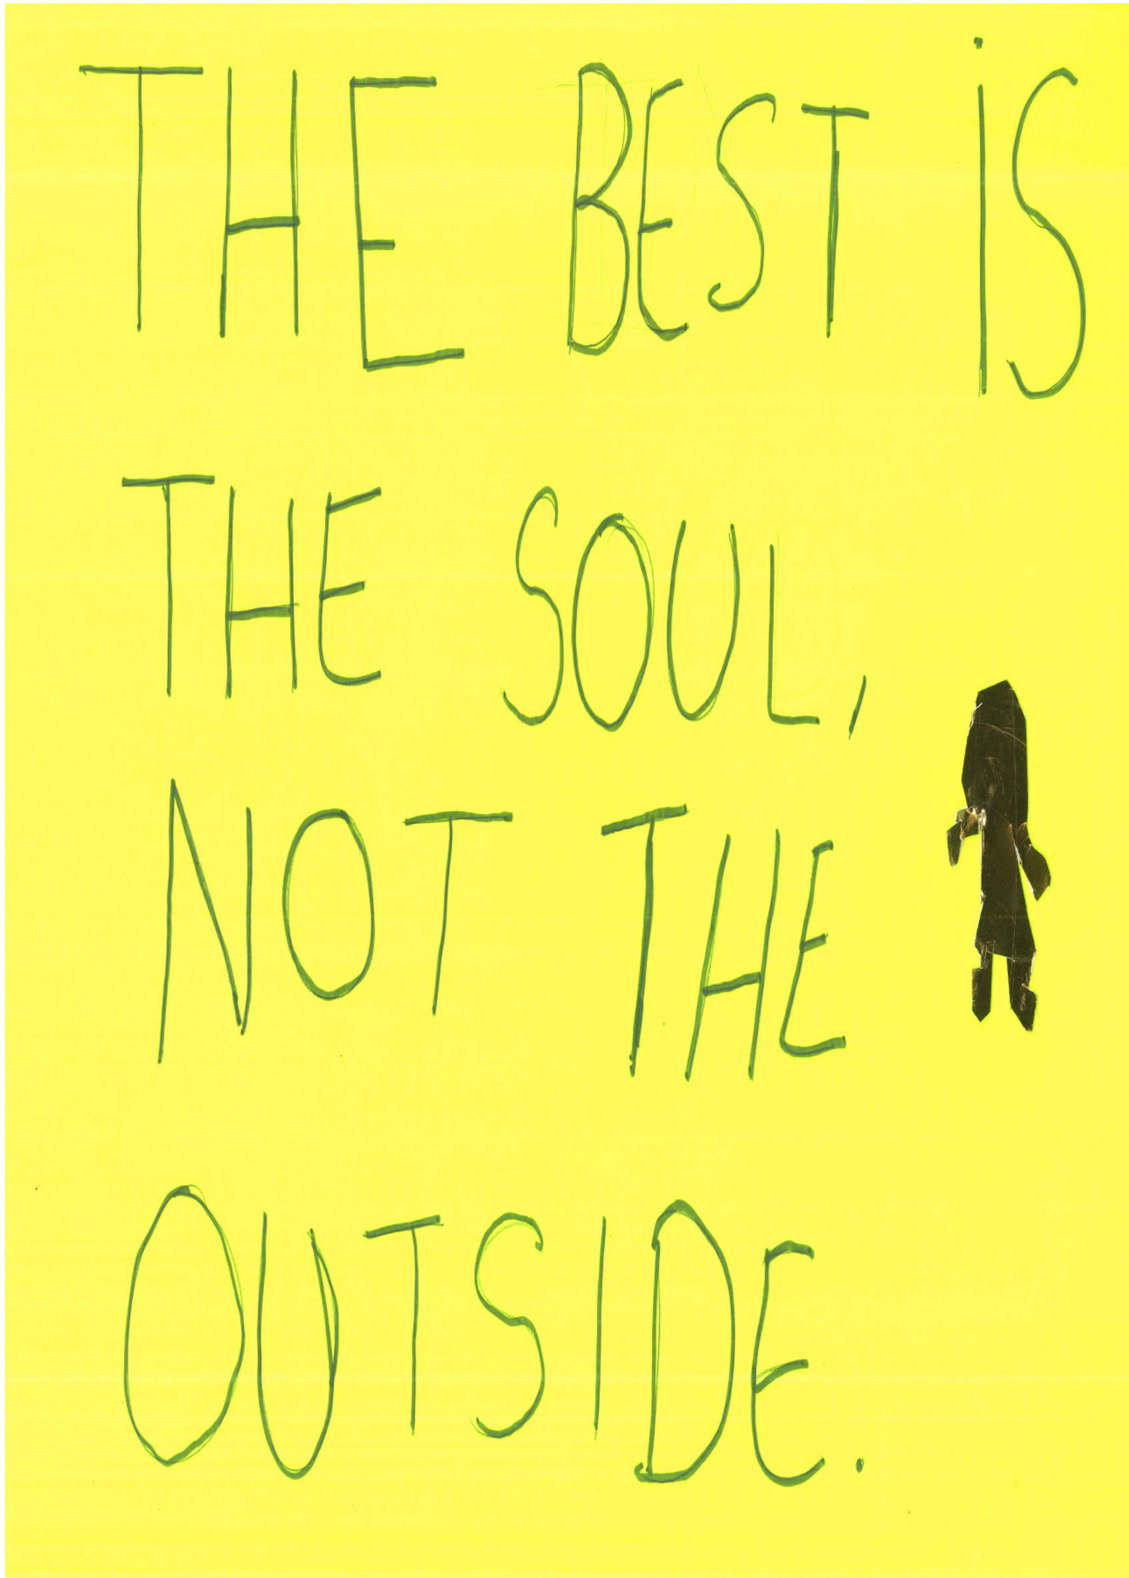 THE BEST iS
THE SOUL,
NOT THE
OUTSIDE.